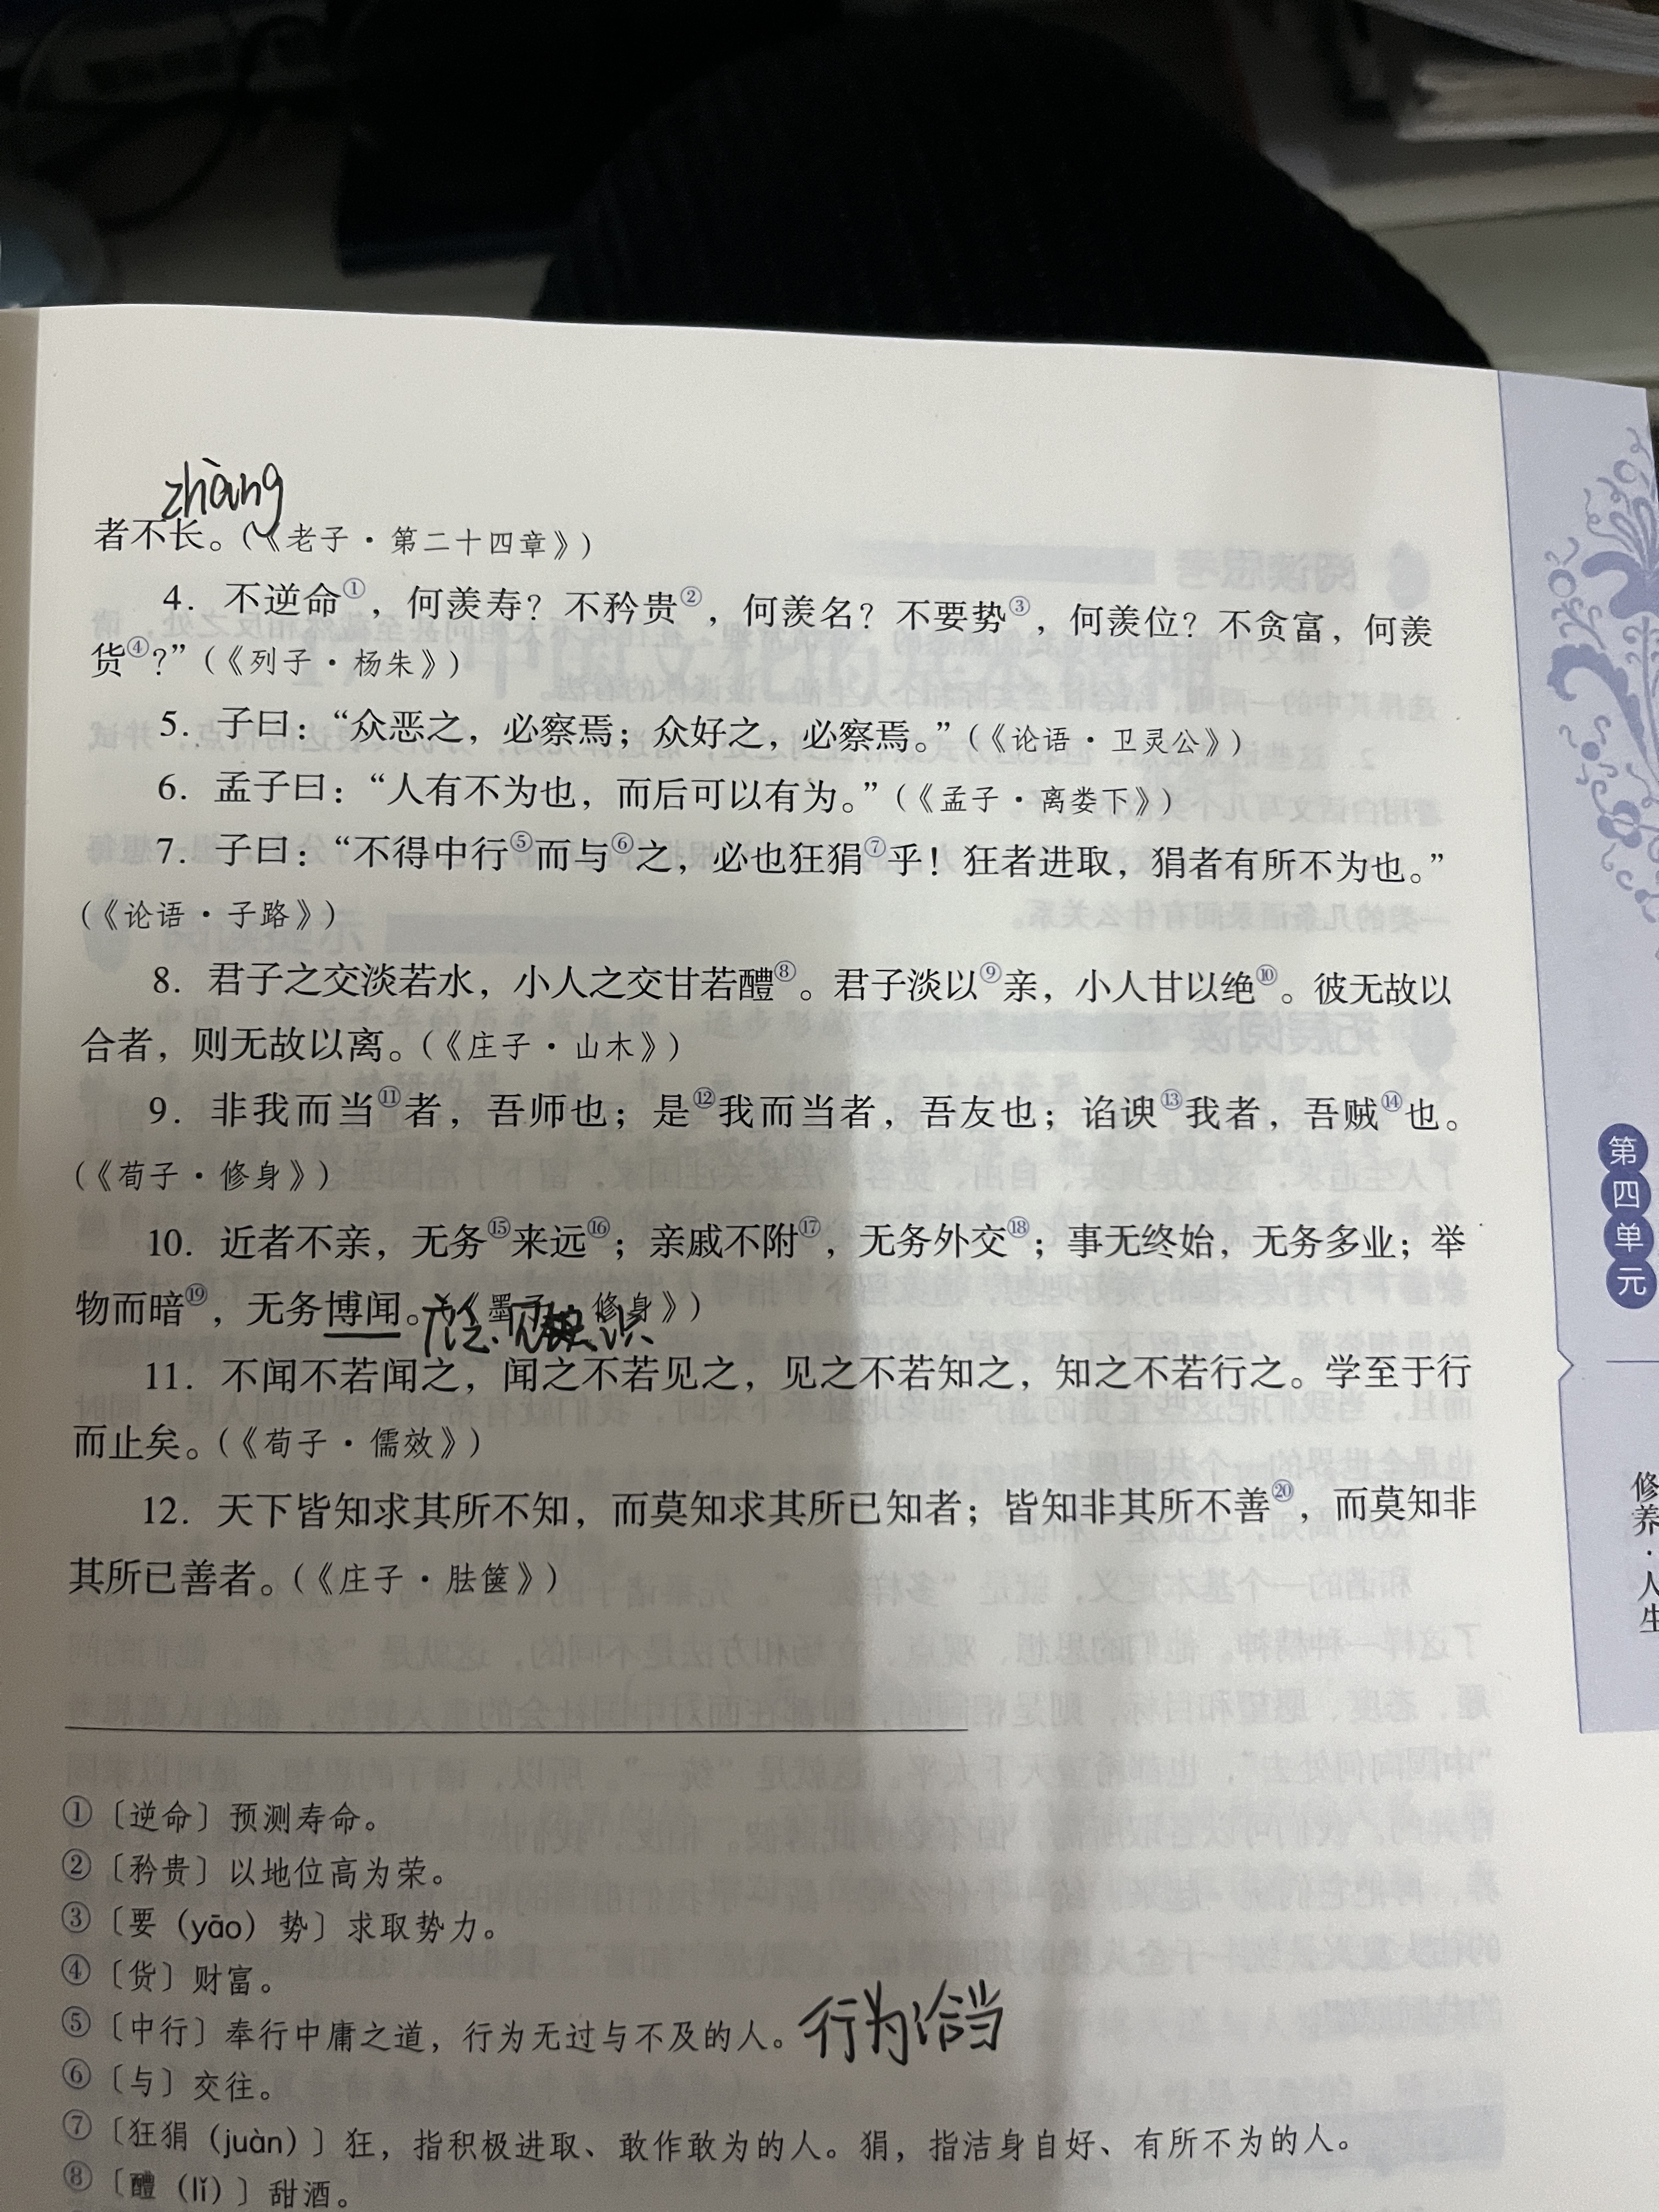 zhàng
者不长。(《老子·第二十四章》)
4. 不逆命①，何羡寿？不矜贵②，何羡名？不要势③，何羡位？不贪富，何羡
货④？”(《列子·杨朱》)
5. 子曰：“众恶之，必察焉；众好之，必察焉。”(《论语·卫灵公》)
6. 孟子曰：“人有不为也，而后可以有为。”(《孟子·离娄下》)
7. 子曰：“不得中行⑤而与⑥之，必也狂狷⑦乎！狂者进取，狷者有所不为也。”
(《论语·子路》)
8. 君子之交淡若水，小人之交甘若醴⑧。君子淡以⑨亲，小人甘以绝⑩。彼无故以
合者，则无故以离。(《庄子·山木》)
9. 非我而当⑪者，吾师也；是⑫我而当者，吾友也；谄谀⑬我者，吾贼⑭也。
(《荀子·修身》)
10. 近者不亲，无务⑮来远⑯；亲戚不附⑰，无务外交⑱；事无终始，无务多业；举
物而暗⑲，无务博闻。(《墨子·修身》)
11. 不闻不若闻之，闻之不若见之，见之不若知之，知之不若行之。学至于行
而止矣。(《荀子·儒效》)
12. 天下皆知求其所不知，而莫知求其所已知者；皆知非其所不善⑳，而莫知非
其所已善者。(《庄子·胠箧》)
①〔逆命〕预测寿命。
②〔矜贵〕以地位高为荣。
③〔要（yāo）势〕求取势力。
④〔货〕财富。
⑤〔中行〕奉行中庸之道，行为无过与不及的人。行为洽当
⑥〔与〕交往。
⑦〔狂狷（juàn）〕狂，指积极进取、敢作敢为的人。狷，指洁身自好、有所不为的人。
⑧〔醴（lǐ）〕甜酒。
第四单元
修养·人生